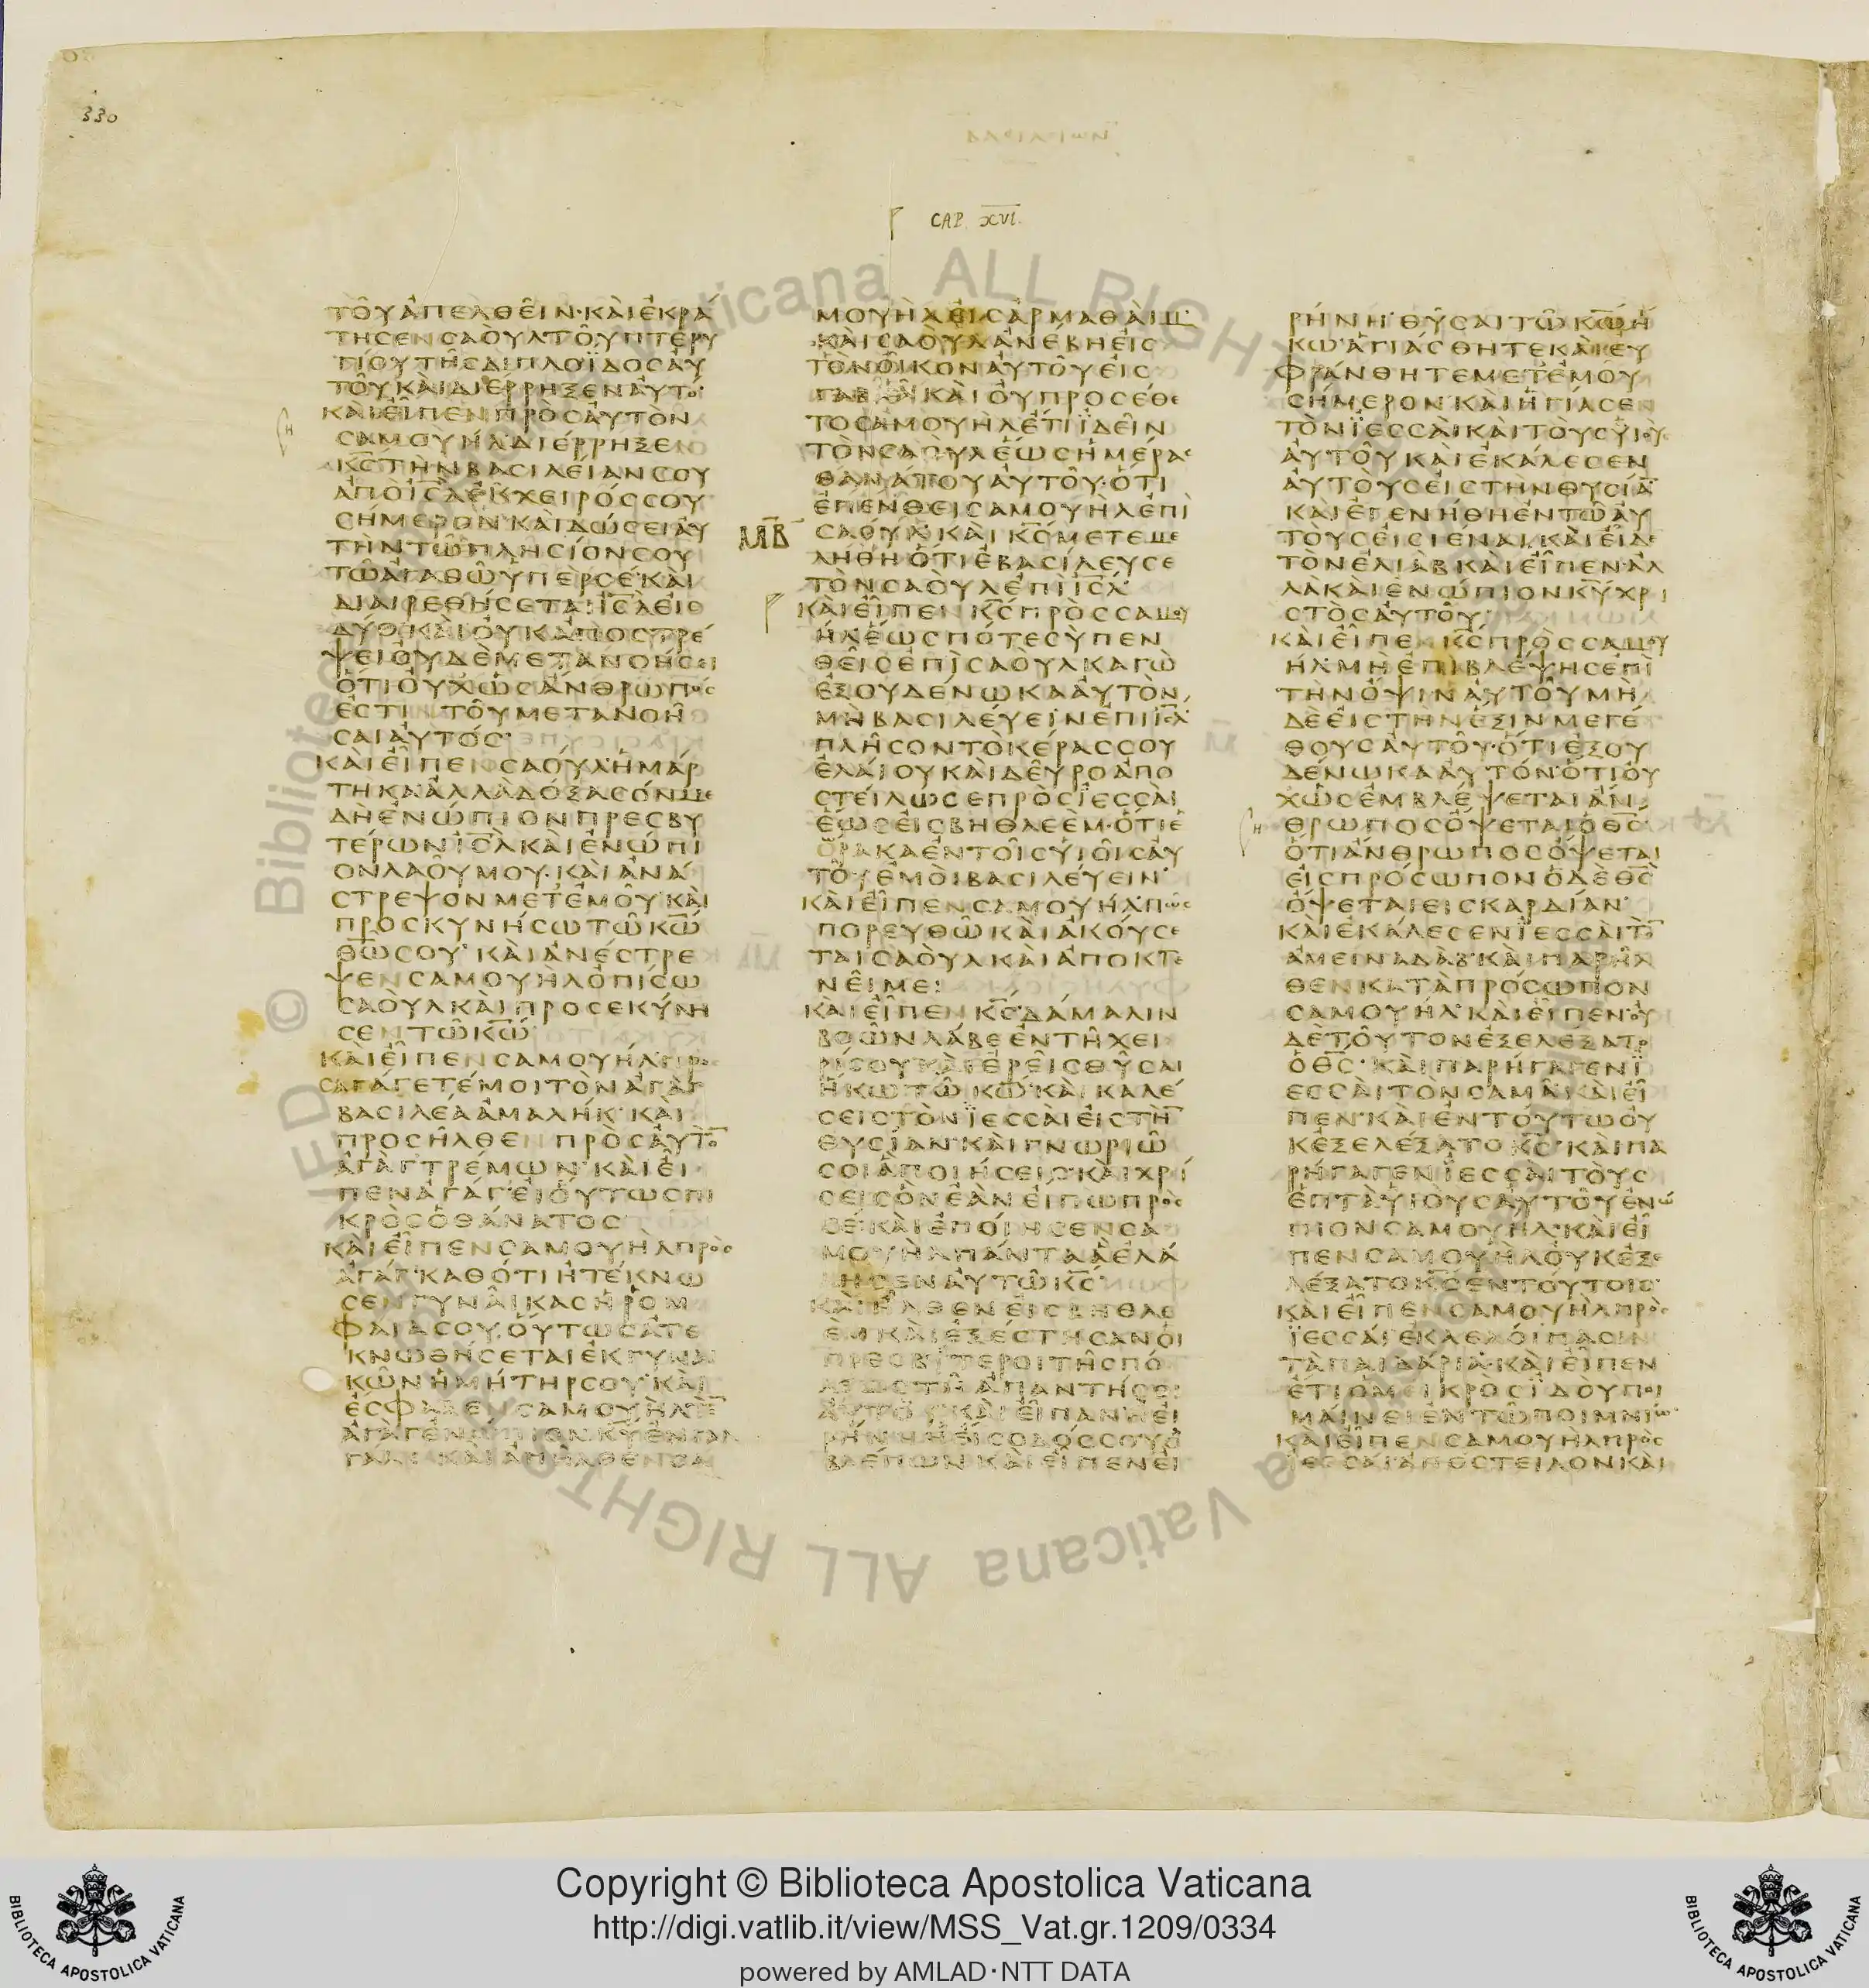 330
ΒΑΣΙΛΕΙΩΝ
CAP. XVI.
ΤΟΥ ΑΠΕΛΘΕΙΝ· ΚΑΙ ΕΚΡΑ
ΤΗΣΕΝ ΣΑΟΥΛ ΤΟΥ ΠΤΕΡΥ
ΓΙΟΥ ΤΗΣ ΔΙΠΛΟΪΔΟΣ ΑΥ
ΤΟΥ ΚΑΙ ΔΙΕΡΡΗΞΕΝ ΑΥΤΟ·
ΚΑΙ ΕΙΠΕΝ ΠΡΟΣ ΑΥΤΟΝ
ΣΑΜΟΥΗΛ ΔΙΕΡΡΗΞΕΝ
ΚΣ ΤΗΝ ΒΑΣΙΛΕΙΑΝ ΣΟΥ
ΑΠΟ ΙΣΛ ΕΚ ΧΕΙΡΟΣ ΣΟΥ
ΣΗΜΕΡΟΝ· ΚΑΙ ΔΩΣΕΙ ΑΥ
ΤΗΝ ΤΩ ΠΛΗΣΙΟΝ ΣΟΥ
ΤΩ ΑΓΑΘΩ ΥΠΕΡ ΣΕ· ΚΑΙ
ΔΙΑΙΡΕΘΗΣΕΤΑΙ ΙΣΛ ΕΙΣ
ΔΥΟ· ΚΑΙ ΟΥΚ ΑΠΟΣΤΡΕ
ΨΕΙ ΟΥΔΕ ΜΕΤΑΝΟΗΣΕΙ
ΟΤΙ ΟΥΧ ΩΣ ΑΝΘΡΩΠΟΣ
ΕΣΤΙΝ ΤΟΥ ΜΕΤΑΝΟΗ
ΣΑΙ ΑΥΤΟΣ·
ΚΑΙ ΕΙΠΕΝ ΣΑΟΥΛ· ΗΜΑΡ
ΤΗΚΑ ΑΛΛΑ ΔΟΞΑΣΟΝ ΜΕ
ΔΗ ΕΝΩΠΙΟΝ ΠΡΕΣΒΥ
ΤΕΡΩΝ ΙΣΛ ΚΑΙ ΕΝΩΠΙ
ΟΝ ΛΑΟΥ ΜΟΥ· ΚΑΙ ΑΝΑ
ΣΤΡΕΨΟΝ ΜΕΤ ΕΜΟΥ· ΚΑΙ
ΠΡΟΣΚΥΝΗΣΩ ΤΩ ΚΩ
ΘΩ ΣΟΥ· ΚΑΙ ΑΝΕΣΤΡΕ
ΨΕΝ ΣΑΜΟΥΗΛ ΟΠΙΣΩ
ΣΑΟΥΛ ΚΑΙ ΠΡΟΣΕΚΥΝΗ
ΣΕΝ ΤΩ ΚΩ·
ΚΑΙ ΕΙΠΕΝ ΣΑΜΟΥΗΛ· ΠΡΟ
ΣΑΓΑΓΕΤΕ ΜΟΙ ΤΟΝ ΑΓΑΓ
ΒΑΣΙΛΕΑ ΑΜΑΛΗΚ· ΚΑΙ
ΠΡΟΣΗΛΘΕΝ ΠΡΟΣ ΑΥΤΟ̅
ΑΓΑΓ ΤΡΕΜΩΝ· ΚΑΙ ΕΙ
ΠΕΝ ΑΓΑΓ· ΕΙ ΟΥΤΩΣ ΠΙ
ΚΡΟΣ Ο ΘΑΝΑΤΟΣ
ΚΑΙ ΕΙΠΕΝ ΣΑΜΟΥΗΛ ΠΡΟΣ
ΑΓΑΓ· ΚΑΘΟΤΙ ΗΤΕΚΝΩ
ΣΕΝ ΓΥΝΑΙΚΑΣ Η ΡΟΜ
ΦΑΙΑ ΣΟΥ, ΟΥΤΩΣ ΑΤΕ
ΚΝΩΘΗΣΕΤΑΙ ΕΚ ΓΥΝΑΙ
ΚΩΝ Η ΜΗΤΗΡ ΣΟΥ· ΚΑΙ
ΕΣΦΑΞΕΝ ΣΑΜΟΥΗΛ ΤΟ̅
ΑΓΑΓ ΕΝΩΠΙΟΝ ΚΥ ΕΝ ΓΑΛ
ΓΑΛ· ΚΑΙ ΑΠΗΛΘΕΝ ΣΑ
ΜΟΥΗΛ ΕΙΣ ΑΡΜΑΘΑΙΜ·
ΚΑΙ ΣΑΟΥΛ ΑΝΕΒΗ ΕΙΣ
ΤΟΝ ΟΙΚΟΝ ΑΥΤΟΥ ΕΙΣ
ΓΑΒΑΑ ΚΑΙ ΟΥ ΠΡΟΣΕΘΕ
ΤΟ ΣΑΜΟΥΗΛ ΕΤΙ ΪΔΕΙΝ
ΤΟΝ ΣΑΟΥΛ ΕΩΣ ΗΜΕΡΑΣ
ΘΑΝΑΤΟΥ ΑΥΤΟΥ· ΟΤΙ
ΕΠΕΝΘΕΙ ΣΑΜΟΥΗΛ ΕΠΙ
ΜΒ ΣΑΟΥΛ· ΚΑΙ ΚΣ ΜΕΤΕΜΕ
ΛΗΘΗ ΟΤΙ ΕΒΑΣΙΛΕΥΣΕ
ΤΟΝ ΣΑΟΥΛ ΕΠΙ ΙΣΛ·
ΚΑΙ ΕΙΠΕΝ ΚΣ ΠΡΟΣ ΣΑΜΟΥ
ΗΛ ΕΩΣ ΠΟΤΕ ΣΥ ΠΕΝ
ΘΕΙΣ ΕΠΙ ΣΑΟΥΛ ΚΑΓΩ
ΕΞΟΥΔΕΝΩΚΑ ΑΥΤΟΝ
ΜΗ ΒΑΣΙΛΕΥΕΙΝ ΕΠΙ ΙΣΛ·
ΠΛΗΣΟΝ ΤΟ ΚΕΡΑΣ ΣΟΥ
ΕΛΑΙΟΥ ΚΑΙ ΔΕΥΡΟ ΑΠΟ
ΣΤΕΙΛΩ ΣΕ ΠΡΟΣ ΪΕΣΣΑΙ
ΕΩΣ ΕΙΣ ΒΗΘΛΕΕΜ· ΟΤΙ Ε
ΟΡΑΚΑ ΕΝ ΤΟΙΣ ΥΙΟΙΣ ΑΥ
ΤΟΥ ΕΜΟΙ ΒΑΣΙΛΕΥΕΙΝ·
ΚΑΙ ΕΙΠΕΝ ΣΑΜΟΥΗΛ· ΠΩΣ
ΠΟΡΕΥΘΩ ΚΑΙ ΑΚΟΥΣΕ
ΤΑΙ ΣΑΟΥΛ ΚΑΙ ΑΠΟΚΤΕ
ΝΕΙ ΜΕ:
ΚΑΙ ΕΙΠΕΝ ΚΣ· ΔΑΜΑΛΙΝ
ΒΟΩΝ ΛΑΒΕ ΕΝ ΤΗ ΧΕΙ
ΡΙ ΣΟΥ ΚΑΙ ΕΡΕΙΣ ΘΥΣΑΙ
ΗΚΩ ΤΩ ΚΩ· ΚΑΙ ΚΑΛΕ
ΣΕΙΣ ΤΟΝ ΪΕΣΣΑΙ ΕΙΣ ΤΗ̅
ΘΥΣΙΑΝ· ΚΑΙ ΓΝΩΡΙΩ
ΣΟΙ Α ΠΟΙΗΣΕΙΣ· ΚΑΙ ΧΡΙ
ΣΕΙΣ ΟΝ ΕΑΝ ΕΙΠΩ ΠΡΟΣ
ΣΕ· ΚΑΙ ΕΠΟΙΗΣΕΝ ΣΑ
ΜΟΥΗΛ ΠΑΝΤΑ Α ΕΛΑ
ΛΗΣΕΝ ΑΥΤΩ ΚΣ·
ΚΑΙ ΗΛΘΕΝ ΕΙΣ ΒΗΘΛΕ
ΕΜ ΚΑΙ ΕΞΕΣΤΗΣΑΝ ΟΙ
ΠΡΕΣΒΥΤΕΡΟΙ ΤΗΣ ΠΟ
ΛΕΩΣ ΤΗ ΑΠΑΝΤΗΣΕΙ
ΑΥΤΟΥ· ΚΑΙ ΕΙΠΑΝ· Η ΕΙ
ΡΗΝΗ Η ΕΙΣΟΔΟΣ ΣΟΥ Ο
ΒΛΕΠΩΝ· ΚΑΙ ΕΙΠΕΝ ΕΙ
ΡΗΝΗ· ΘΥΣΑΙ ΤΩ ΚΩ Η
ΚΩ· ΑΓΙΑΣΘΗΤΕ ΚΑΙ ΕΥ
ΦΡΑΝΘΗΤΕ ΜΕΤ ΕΜΟΥ
ΣΗΜΕΡΟΝ· ΚΑΙ ΗΓΙΑΣΕΝ
ΤΟΝ ΪΕΣΣΑΙ ΚΑΙ ΤΟΥΣ ΥΙΟΥΣ
ΑΥΤΟΥ ΚΑΙ ΕΚΑΛΕΣΕΝ
ΑΥΤΟΥΣ ΕΙΣ ΤΗΝ ΘΥΣΙΑ̅
ΚΑΙ ΕΓΕΝΗΘΗ ΕΝ ΤΩ ΑΥ
ΤΟΥΣ ΕΙΣΙΕΝΑΙ, ΚΑΙ ΕΙΔΕ
ΤΟΝ ΕΛΙΑΒ ΚΑΙ ΕΙΠΕΝ· ΑΛ
ΛΑ ΚΑΙ ΕΝΩΠΙΟΝ ΚΥ ΧΡΙ
ΣΤΟΣ ΑΥΤΟΥ·
ΚΑΙ ΕΙΠΕΝ ΚΣ ΠΡΟΣ ΣΑΜΟΥ
ΗΛ· ΜΗ ΕΠΙΒΛΕΨΗΣ ΕΠΙ
ΤΗΝ ΟΨΙΝ ΑΥΤΟΥ ΜΗ
ΔΕ ΕΙΣ ΤΗΝ ΕΞΙΝ ΜΕΓΕ
ΘΟΥΣ ΑΥΤΟΥ· ΟΤΙ ΕΞΟΥ
ΔΕΝΩΚΑ ΑΥΤΟΝ· ΟΤΙ ΟΥ
Χ ΩΣ ΕΜΒΛΕΨΕΤΑΙ ΑΝ
ΘΡΩΠΟΣ ΟΨΕΤΑΙ Ο ΘΣ·
ΟΤΙ ΑΝΘΡΩΠΟΣ ΟΨΕΤΑΙ
ΕΙΣ ΠΡΟΣΩΠΟΝ Ο ΔΕ ΘΣ
ΟΨΕΤΑΙ ΕΙΣ ΚΑΡΔΙΑΝ·
ΚΑΙ ΕΚΑΛΕΣΕΝ ΪΕΣΣΑΙ ΤΟ̅
ΑΜΕΙΝΑΔΑΒ· ΚΑΙ ΠΑΡΗΛ
ΘΕΝ ΚΑΤΑ ΠΡΟΣΩΠΟΝ
ΣΑΜΟΥΗΛ· ΚΑΙ ΕΙΠΕΝ· ΟΥ
ΔΕ ΤΟΥΤΟΝ ΕΞΕΛΕΞΑΤΟ
Ο ΘΣ· ΚΑΙ ΠΑΡΗΓΑΓΕΝ Ϊ
ΕΣΣΑΙ ΤΟΝ ΣΑΜΑ· ΚΑΙ ΕΙ
ΠΕΝ· ΚΑΙ ΕΝ ΤΟΥΤΩ ΟΥ
Κ ΕΞΕΛΕΞΑΤΟ ΚΣ· ΚΑΙ ΠΑ
ΡΗΓΑΓΕΝ ΪΕΣΣΑΙ ΤΟΥΣ
ΕΠΤΑ ΥΙΟΥΣ ΑΥΤΟΥ ΕΝΩ
ΠΙΟΝ ΣΑΜΟΥΗΛ· ΚΑΙ ΕΙ
ΠΕΝ ΣΑΜΟΥΗΛ ΟΥΚ ΕΞΕ
ΛΕΞΑΤΟ ΚΣ ΕΝ ΤΟΥΤΟΙΣ·
ΚΑΙ ΕΙΠΕΝ ΣΑΜΟΥΗΛ ΠΡΟΣ
ΪΕΣΣΑΙ· ΕΚΛΕΛΟΙΠΑΣΙΝ
ΤΑ ΠΑΙΔΑΡΙΑ· ΚΑΙ ΕΙΠΕΝ
ΕΤΙ Ο ΜΕΙΚΡΟΣ ΙΔΟΥ ΠΟΙ
ΜΑΙΝΕΙ ΕΝ ΤΩ ΠΟΙΜΝΙΩ·
ΚΑΙ ΕΙΠΕΝ ΣΑΜΟΥΗΛ ΠΡΟΣ
ΪΕΣΣΑΙ· ΑΠΟΣΤΕΙΛΟΝ ΚΑΙ
Copyright © Biblioteca Apostolica Vaticana
http://digi.vatlib.it/view/MSS_Vat.gr.1209/0334
powered by AMLAD·NTT DATA
BIBLIOTECA APOSTOLICA VATICANA
BIBLIOTECA APOSTOLICA VATICANA